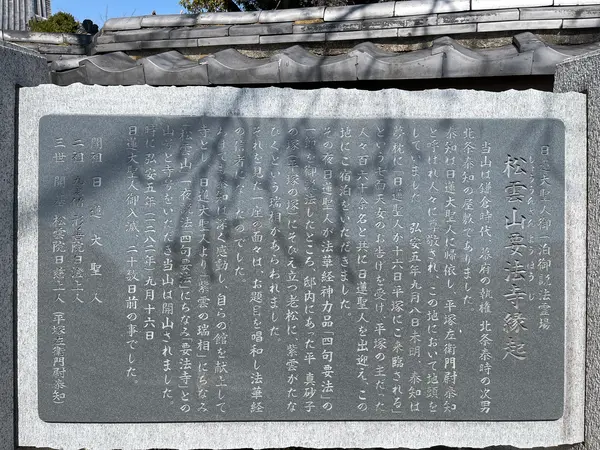 日蓮大聖人御一泊御説法霊場
松雲山要法寺縁起
当山は鎌倉時代、幕府の執権 北条泰時の次男
北条泰知の屋敷でありました。
泰知は日蓮大聖人に帰依し、平塚左衛門尉泰知
と呼ばれ人々に尊敬され、この地において地頭を
していました。 弘安五年九月八日未明、泰知は
夢枕に「日蓮聖人が十六日平塚にご来臨される」
という七面天女のお告げを受け、平塚の主だった
人々百六十余名と共に日蓮聖人を出迎え、この
地にご宿泊をいただきました。
その夜日蓮聖人が法華経神力品「四句要法」の
一節を御説法したところ、邸内にあった平 真砂子
の塚「平塚の塚」にそびえ立つ老松に、紫雲がたな
びくという瑞相があらわれました。
それを見た一座の面々は、お題目を唱和し法華経
の信者になったのでした。
泰知は深く感動し、自らの館を献上して
寺とし、日蓮大聖人より「紫雲の瑞相」にちなみ
「松雲山」「一夜説法・四句要法」にちなみ「要法寺」との
山号と寺号をいただき当山は開山されました。
時に弘安五年(一二八二年)九月十六日
日蓮大聖人御入滅、二十数日前の事でした。
開祖 日蓮大聖人
二祖 日 上人
三世 開基 松雲院日慈上人 (平塚左衛門尉泰知)